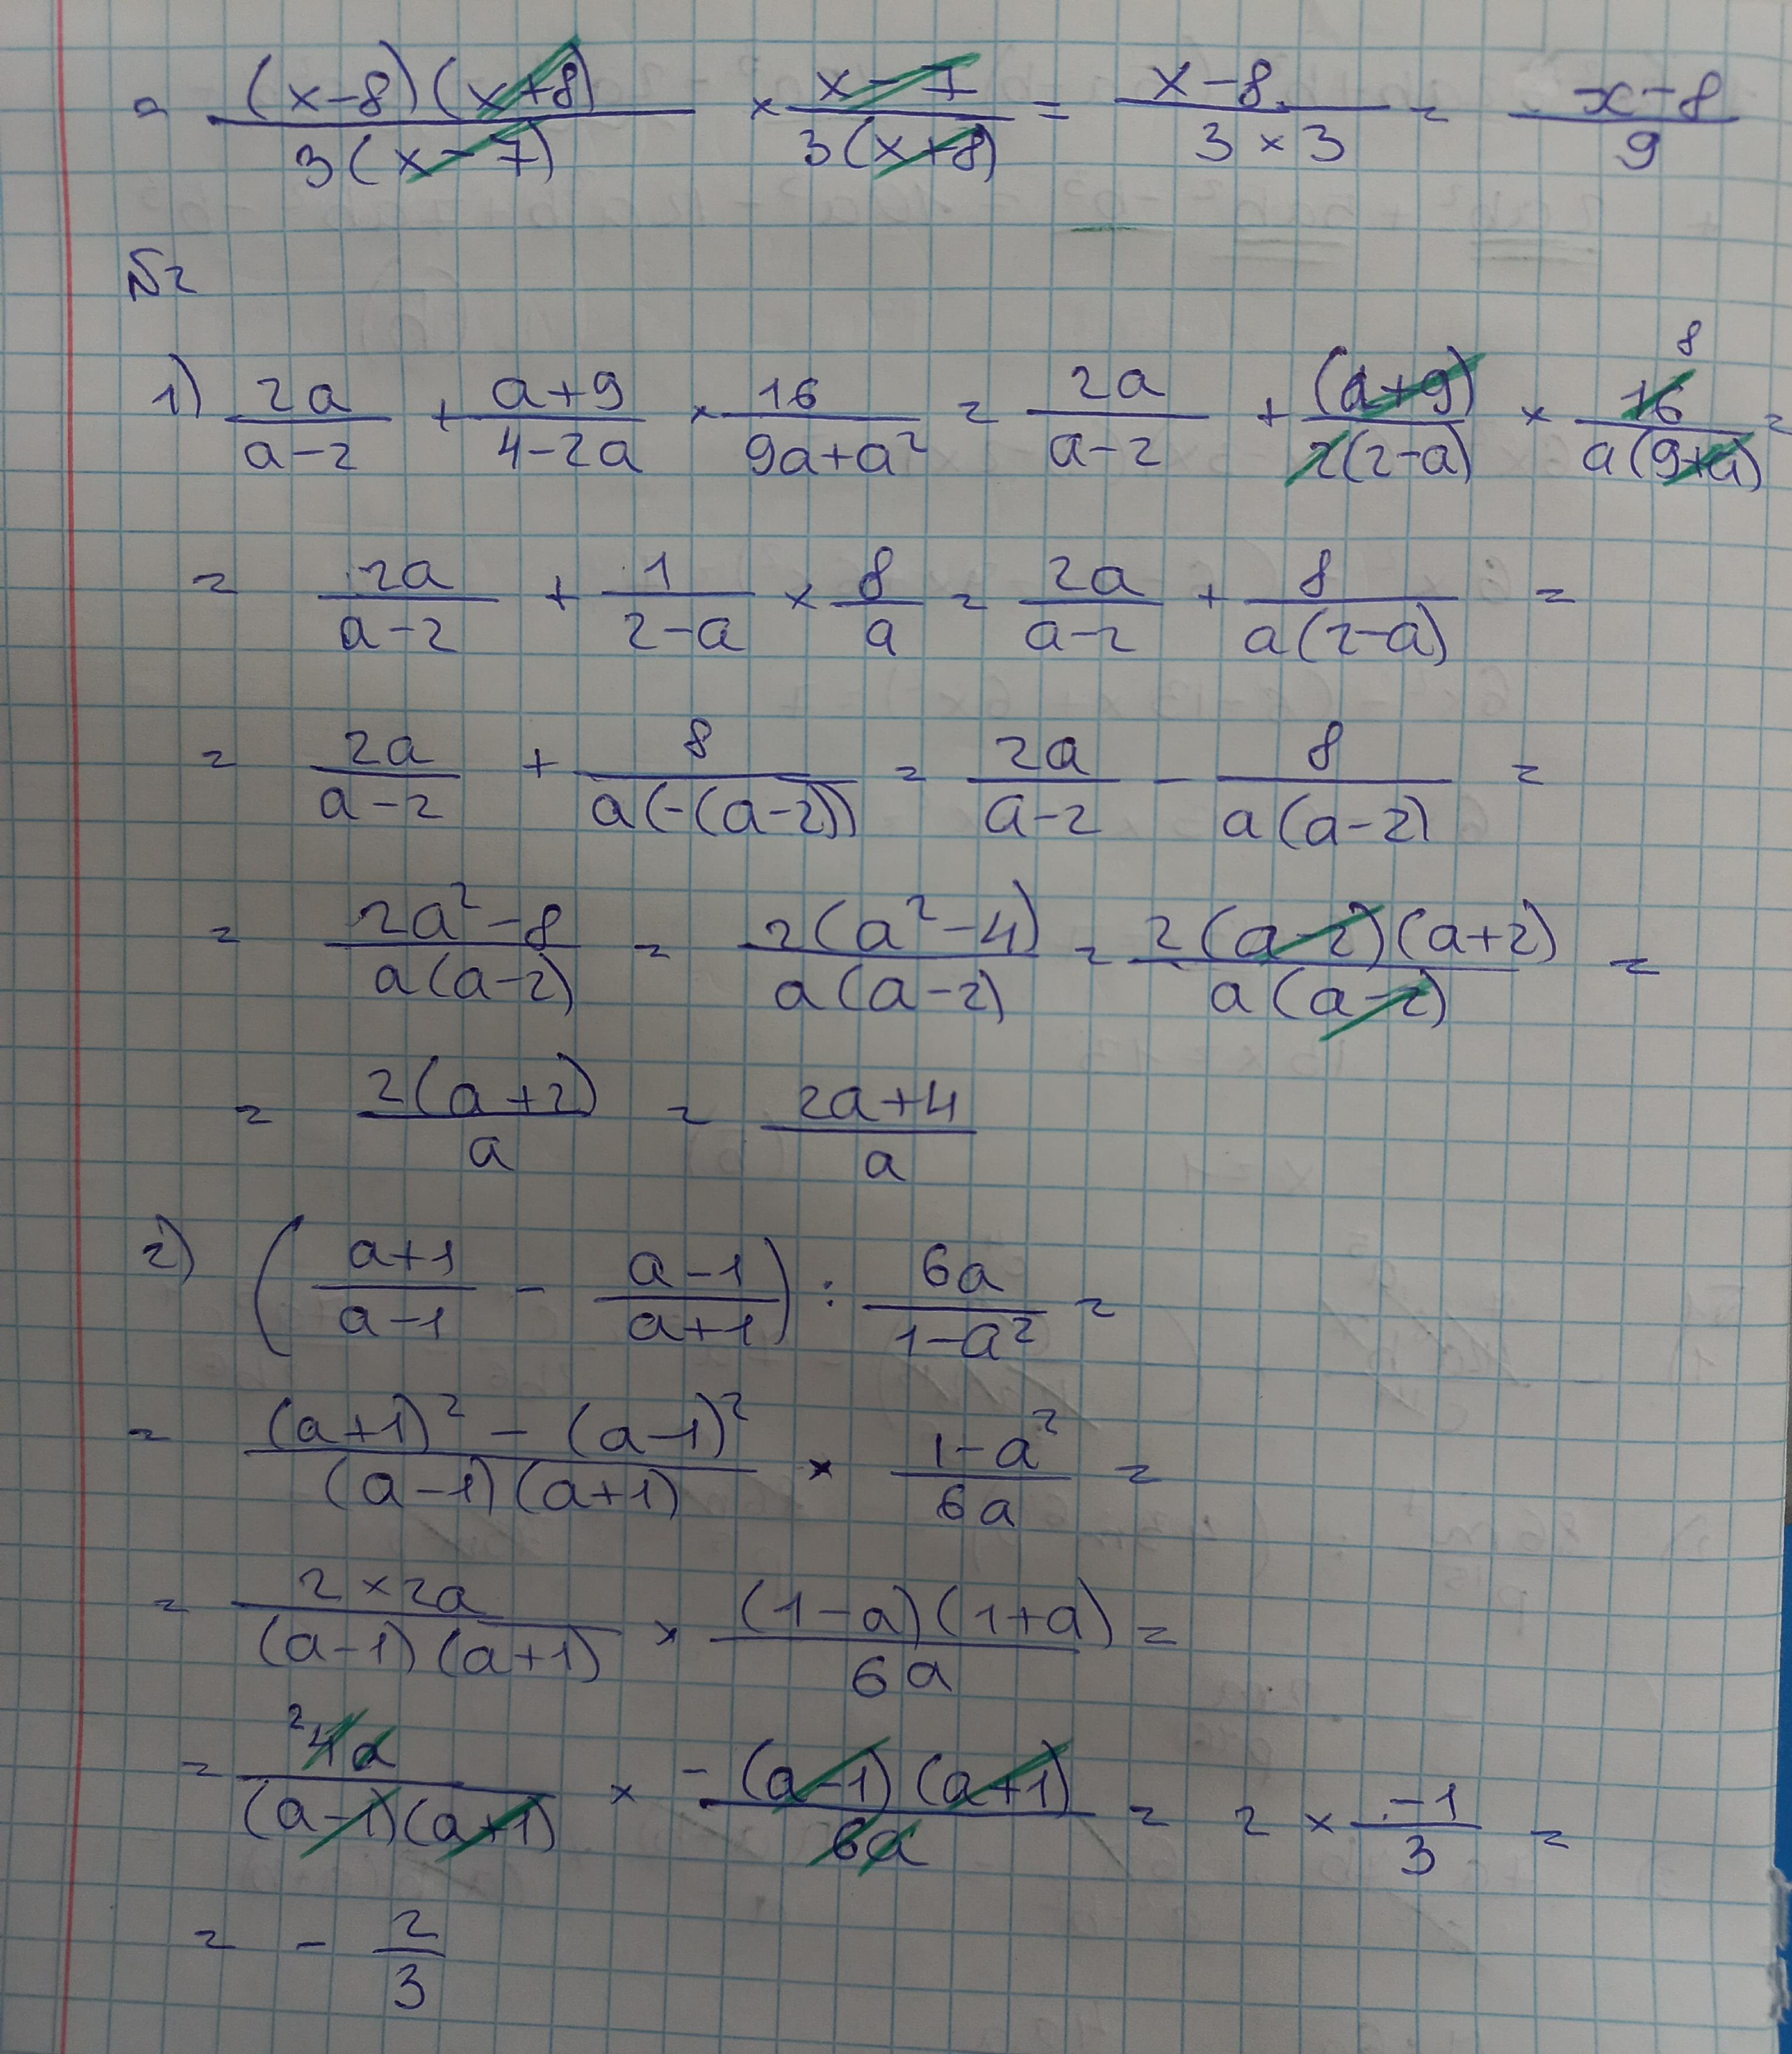 = \frac{(x-8)(x+8)}{3(x-7)} × \frac{x-7}{3(x+8)} = \frac{x-8}{3×3} = \frac{x-8}{9}
№2
1) \frac{2a}{a-2} + \frac{a+9}{4-2a} × \frac{16}{9a+a^2} = \frac{2a}{a-2} + \frac{(a+9)}{2(2-a)} × \frac{16}{a(9+a)} = 8
= \frac{2a}{a-2} + \frac{1}{2-a} × \frac{8}{a} = \frac{2a}{a-2} + \frac{8}{a(2-a)} =
= \frac{2a}{a-2} + \frac{8}{a(-(a-2))} = \frac{2a}{a-2} - \frac{8}{a(a-2)} =
= \frac{2a^2-8}{a(a-2)} = \frac{2(a^2-4)}{a(a-2)} = \frac{2(a-2)(a+2)}{a(a-2)} =
= \frac{2(a+2)}{a} = \frac{2a+4}{a}
2) (\frac{a+1}{a-1} - \frac{a-1}{a+1}) : \frac{6a}{1-a^2} =
= \frac{(a+1)^2-(a-1)^2}{(a-1)(a+1)} × \frac{1-a^2}{6a} =
= \frac{2×2a}{(a-1)(a+1)} × \frac{(1-a)(1+a)}{6a} =
= \frac{^2 4a}{(a-1)(a+1)} × \frac{-(a-1)(a+1)}{6a} = 2 × \frac{-1}{3} =
= - \frac{2}{3}